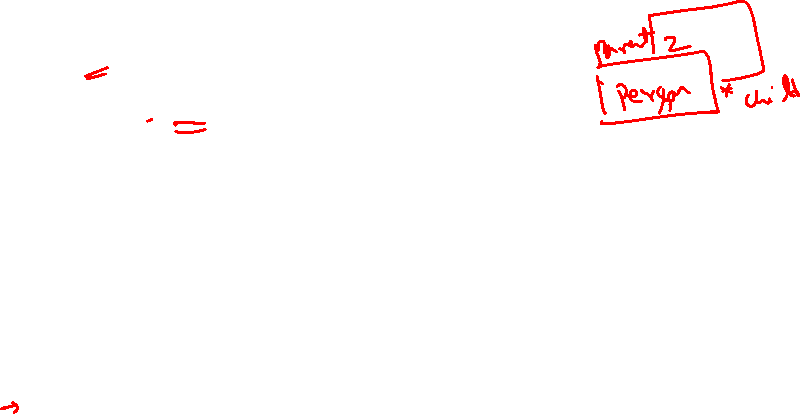 parent 2
Person * child